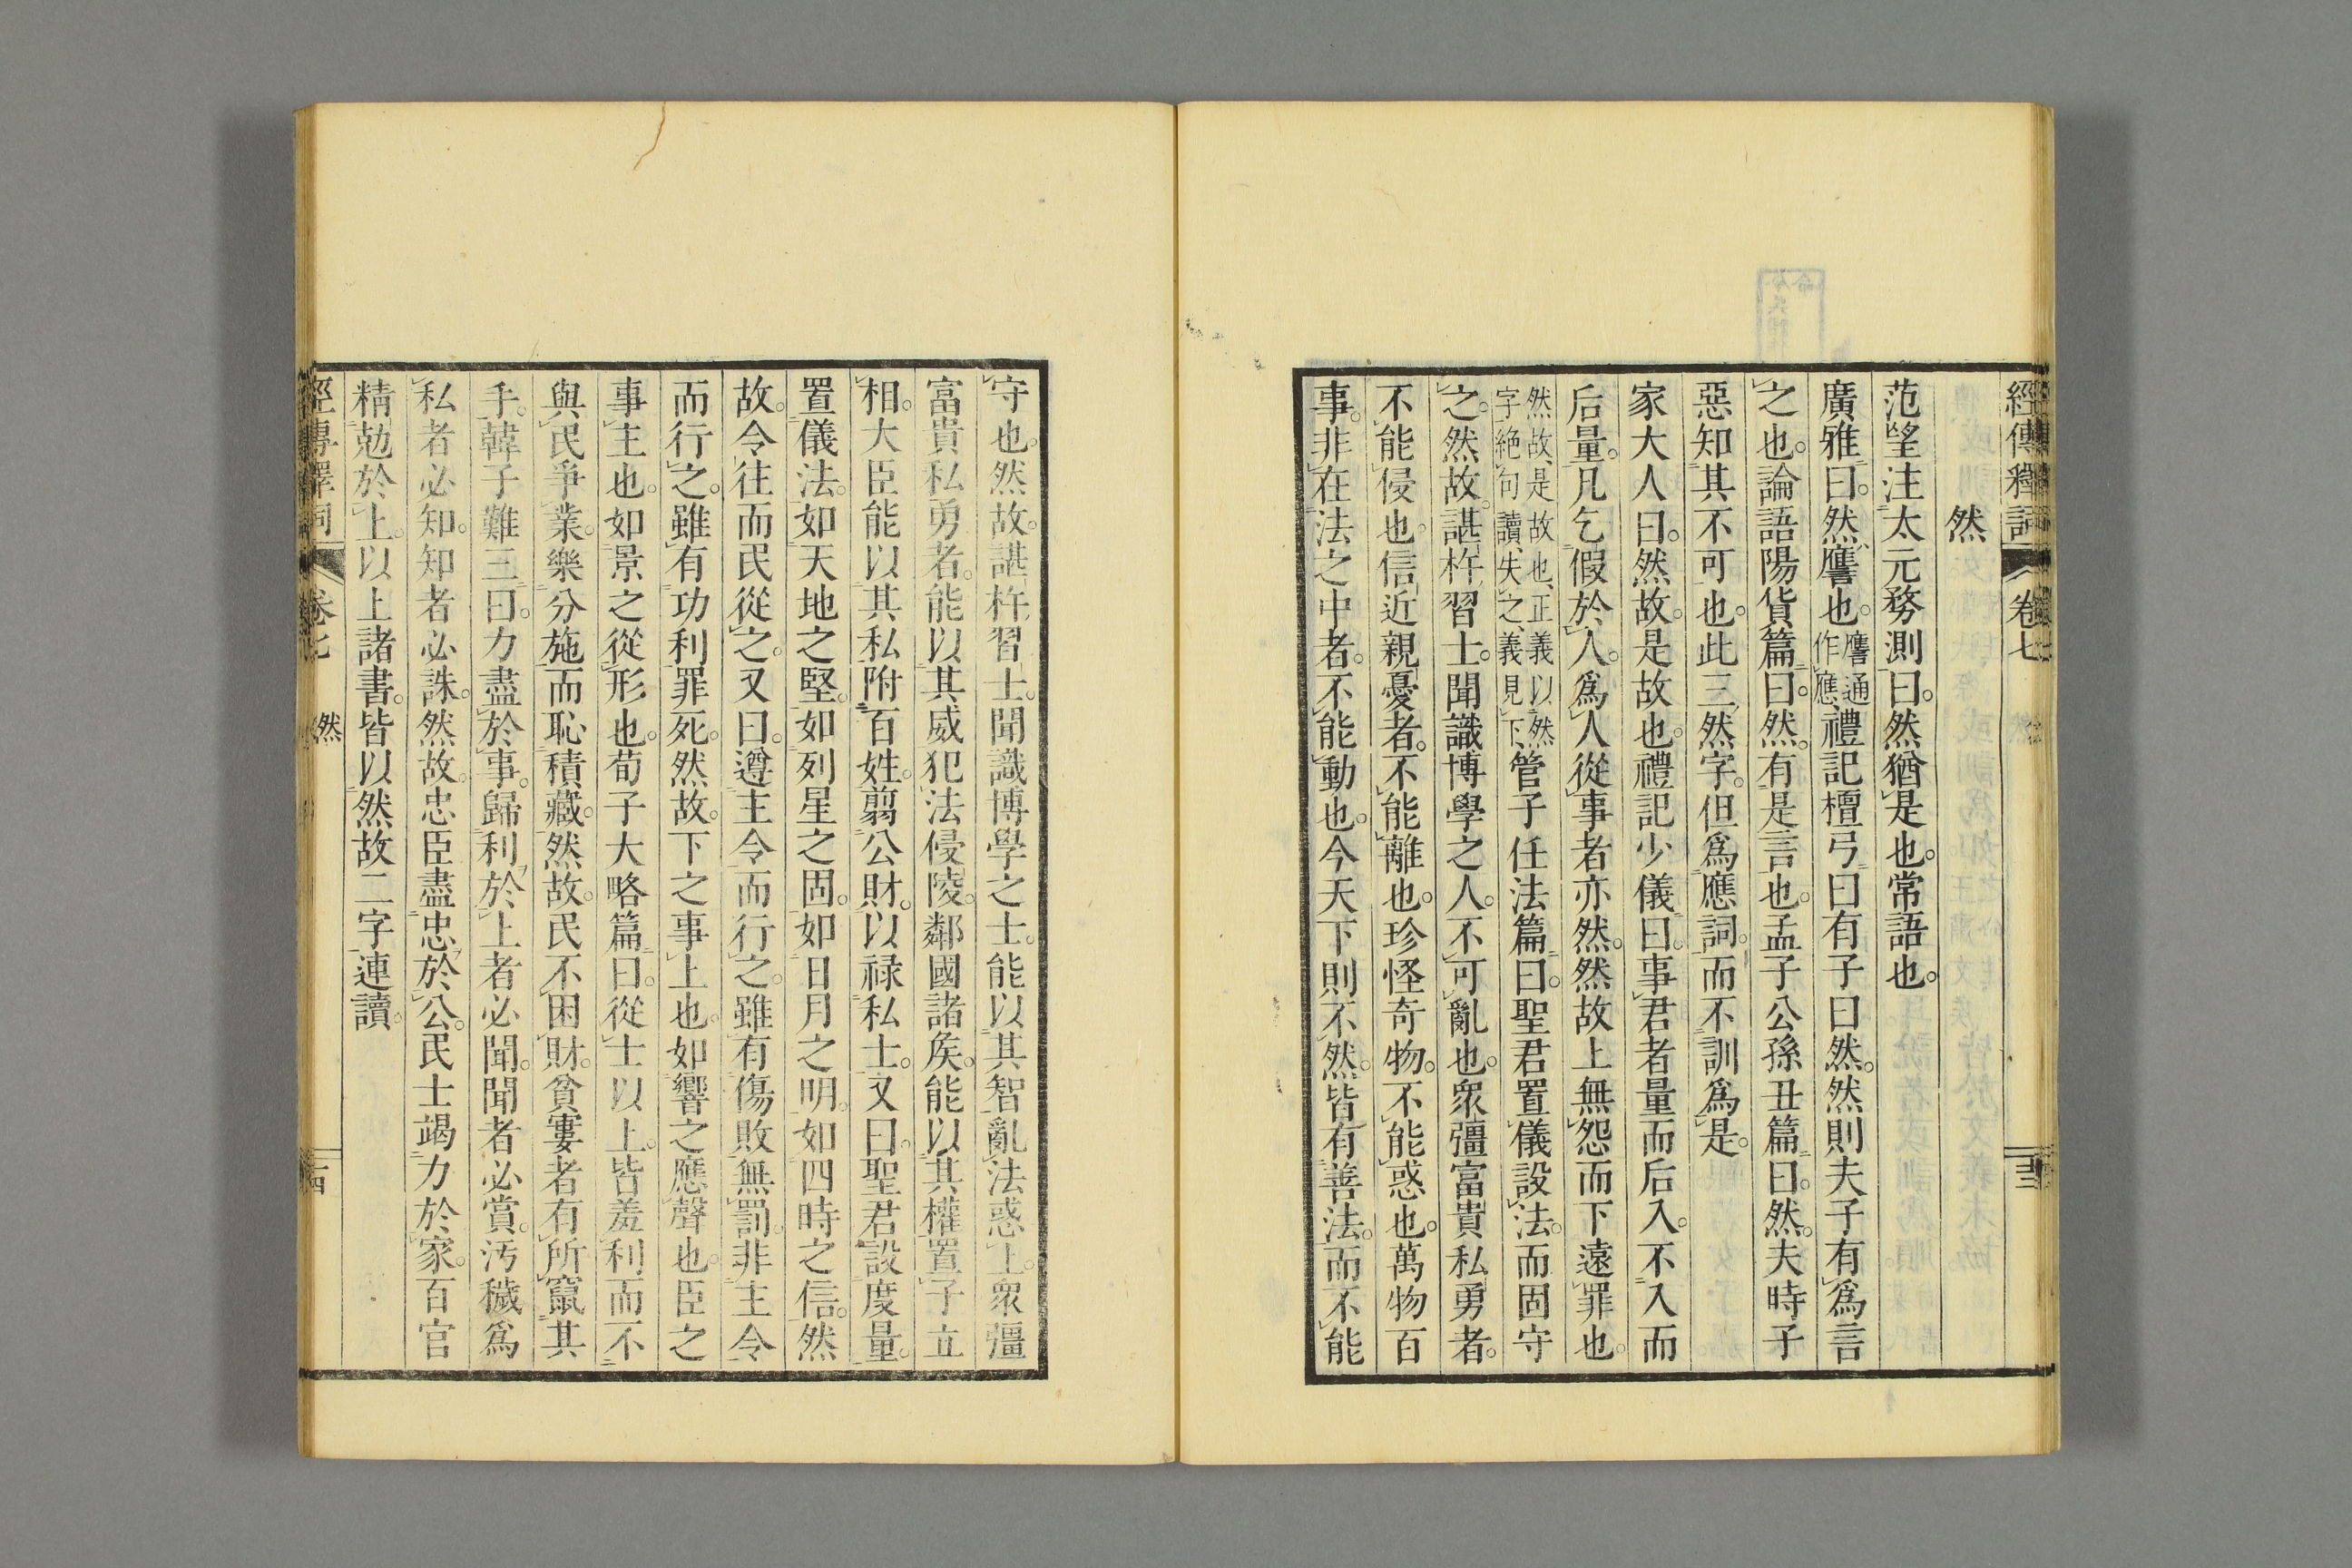 經傳釋詞 卷七 十三
然
范望注太元務測曰。然猶是也。常語也。
廣雅曰。然譍也。譍通作應、禮記檀弓曰有子曰然。然則夫子有爲言
之也。論語陽貨篇曰。然。有是言也。孟子公孫丑篇曰。然。夫時子
惡知其不可也。此三然字。但爲應詞。而不訓爲是。
家大人曰。然故。是故也。禮記少儀曰。事君者量而后入。不入而
后量。凡乞假於人。爲人從事者亦然。然故上無怨而下遠罪也。
然故、是故也、正義以然字絕句讀、失之、義見下、管子任法篇曰。聖君置儀設法。而固守
之。然故。諶杵習士。聞識博學之人。不可亂也。衆彊富貴私勇者。
不能侵也。信近親憂者。不能離也。珍怪奇物。不能惑也。萬物百
事。非在法之中者。不能動也。今天下則不然。皆有善法。而不能
守也。然故。諶杵習士。聞識博學之士。能以其智亂法惑上。衆彊
富貴私勇者。能以其威犯法侵陵。鄰國諸矦。能以其權置子立
相。大臣能以其私附百姓。翦公財。以祿私士。又曰。聖君設度量。
置儀法。如天地之堅。如列星之固。如日月之明。如四時之信。然
故。令往而民從之。又曰。遵主令而行之。雖有傷敗無罰。非主令
而行之。雖有功利罪死。然故。下之事上也。如響之應聲也。臣之
事主也。如景之從形也。荀子大略篇曰。從士以上。皆羞利而不
與民爭業。樂分施而恥積藏。然故。民不困財。貧窶者有所竄其
手。韓子難三曰。力盡於事。歸利於上者必聞。聞者必賞。汚穢爲
私者必知。知者必誅。然故。忠臣盡忠於公。民士竭力於家。百官
精勊於上。以上諸書。皆以然故二字連讀。
經傳釋詞 卷七 然 十四